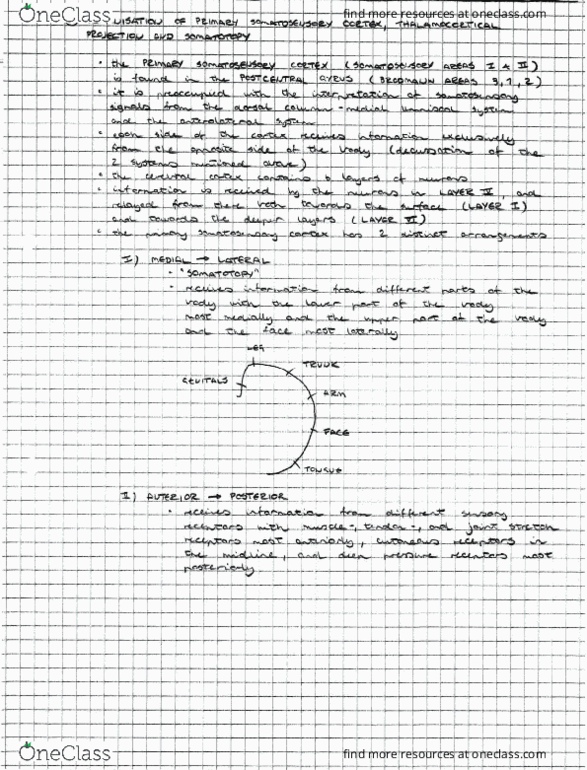 OneClass
find more resources at oneclass.com
NISATION OF PRIMARY SOMATOSENSORY CORTEX, THALAMOCORTICAL
PROJECTION AND SOMATOTOPY
• the PRIMARY SOMATOSENSORY CORTEX (SOMATOSENSORY AREAS I & II)
is found in the POSTCENTRAL GYRUS (BRODMANN AREAS 3,1,2)
• it is preoccupied with the interpretation of somatosensory
signals from the dorsal column-medial lemniscal system
and the anterolateral system
• each side of the cortex receives information exclusively
from the opposite side of the body (decussation of the
2 systems mentioned above)
• the cerebral cortex contains 6 layers of neurons
• information is received by the neurons in LAYER , and
relayed from there both towards the surface (LAYER I)
and towards the deeper layers (LAYER VI)
• the primary somatosensory cortex has 2 distinct arrangements
I) MEDIAL → LATERAL
• "SOMATOTOPY"
• receives information from different parts of the
body with the lower part of the body
most medially and the upper part of the body
and the face most laterally
LEG
TRUNK
GENITALS
ARM
FACE
TONGUE
I) ANTERIOR → POSTERIOR
• receives information from different sensory
receptors with muscle-, tendon-, and joint stretch
receptors most anteriorly, cutaneous receptors in
the midline, and deep pressure receptors most
posteriorly
OneClass
find more resources at oneclass.com